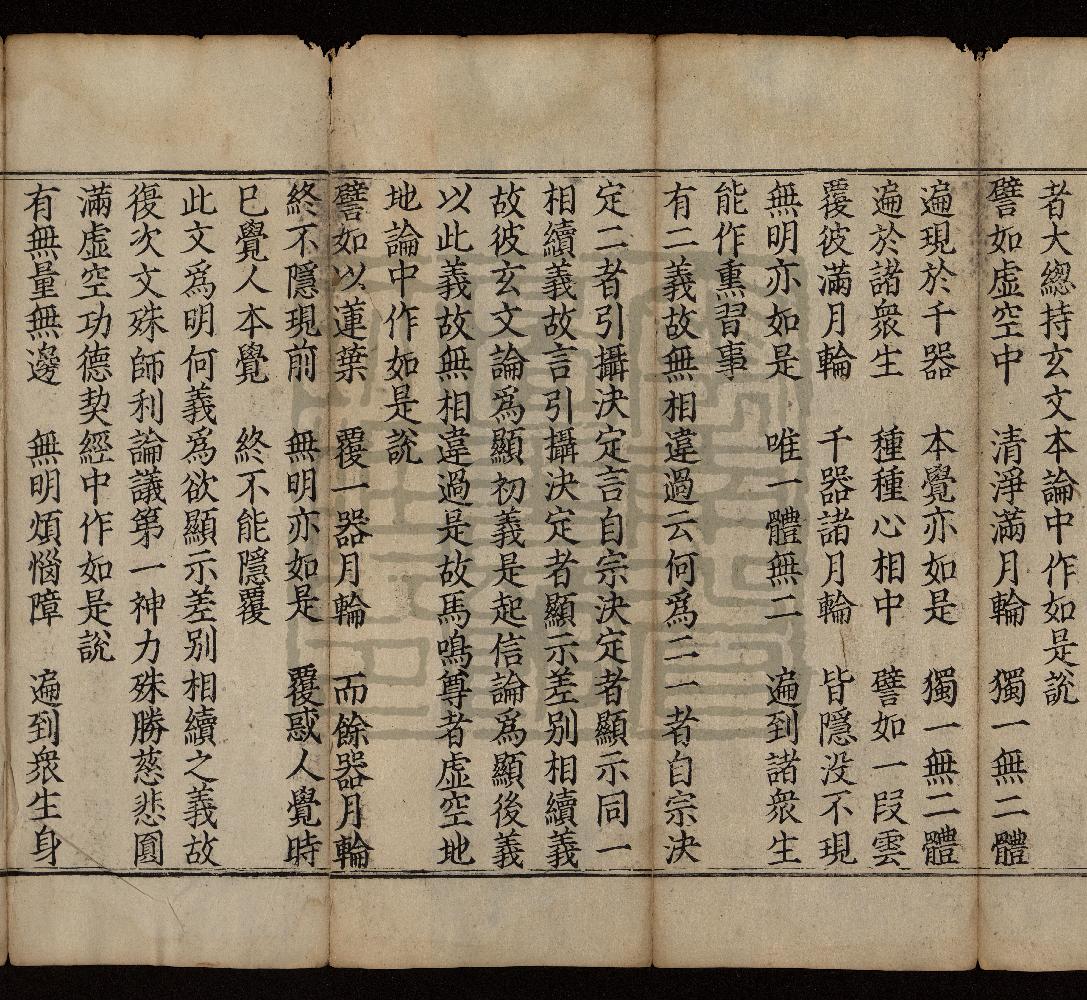 者大總持玄文本論中作如是說
譬如虛空中　清淨滿月輪　獨一無二體
遍現於千器　本覺亦如是　獨一無二體
遍於諸衆生　種種心相中　譬如一段雲
覆彼滿月輪　千器諸月輪　皆隱没不現
無明亦如是　唯一體無二　遍到諸衆生
能作熏習事
有二義故無相違過云何爲二一者自宗決
定二者引攝決定言自宗決定者顯示同一
相續義故言引攝決定者顯示差別相續義
故彼玄文論爲顯初義是起信論爲顯後義
以此義故無相違過是故馬鳴尊者虛空地
地論中作如是說
譬如以蓮葉　覆一器月輪　而餘器月輪
終不隱現前　無明亦如是　覆惑人覺時
已覺人本覺　終不能隱覆
此文爲明何義爲欲顯示差別相續之義故
復次文殊師利論議第一神力殊勝慈悲圓
滿虛空功德契經中作如是說
有無量無邊　無明煩惱障　遍到衆生身